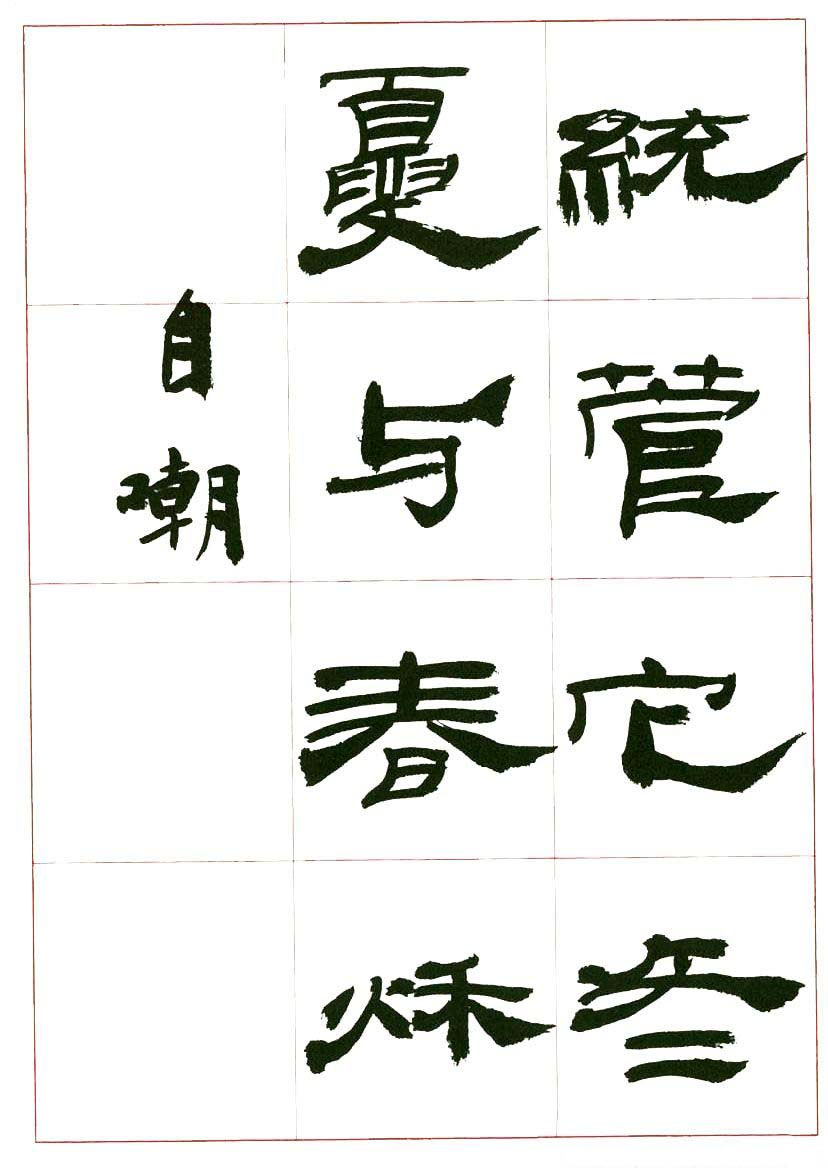 統管它冬
夏与春秋
自嘲